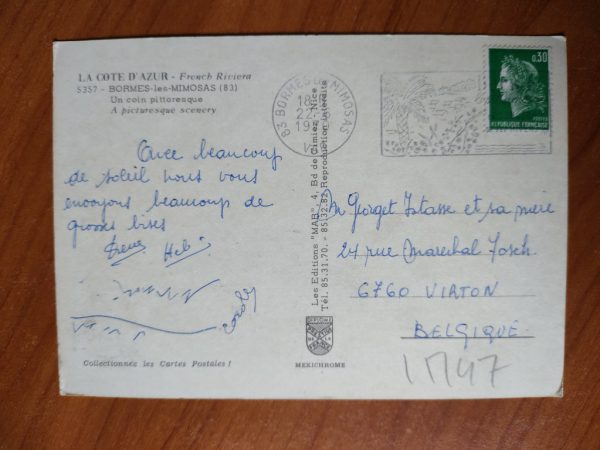 LA COTE D'AZUR - French Riviera
5357 - BORMES-les-MIMOSAS (83)
Un coin pittoresque
A picturesque scenery
Avec beaucoup
de soleil nous vous
envoyons beaucoup de
grosses bises
Carole
Collectionnez les Cartes Postales !
83 BORMES LES MIMOSAS
18
22
19
Les Editions "MAR", 4, Bd de Cimiez - Nice
Tél. 85.31.70. - 85.32.82 Reproduction interdite
MEXICHROME
0,30
POSTES
REPUBLIQUE FRANÇAISE
Georget et sa mère
24 rue Marechal Fosch
6760 VIRTON
BELGIQUE